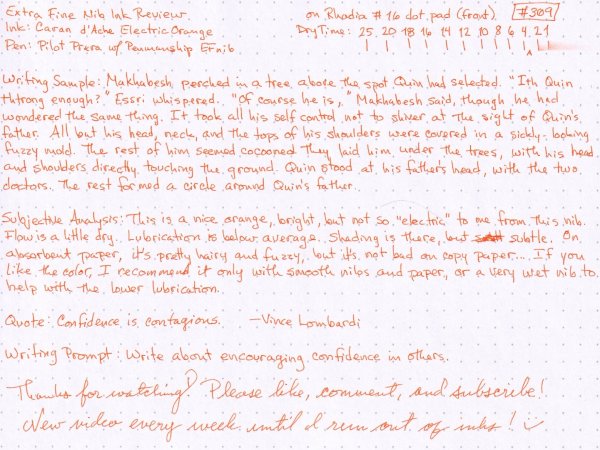 Extra Fine Nib Ink Review on Rhodia #16 dot pad (front) #309
Ink: Caran d'Ache Electric Orange Dry Time: 25 20 18 16 14 12 10 8 6 4 2 1
Pen: Pilot Prera w/ Penmanship EF nib
Writing Sample: Makhabesh perched in a tree above the spot Quin had selected. "Ith Quin
thtrong enough?" Essri whispered. "Of course he is," Makhabesh said, though he had
wondered the same thing. It took all his self control not to shiver at the sight of Quin's
father. All but his head, neck, and the tops of his shoulders were covered in a sickly-looking
fuzzy mold. The rest of him seemed cocooned. They laid him under the trees, with his head
and shoulders directly touching the ground. Quin stood at his father's head, with the two
doctors. The rest formed a circle around Quin's father.
Subjective Analysis: This is a nice orange, bright, but not so "electric" to me from this nib.
Flow is a little dry. Lubrication is below average. Shading is there, but subtle. On
absorbent paper, it's pretty hairy and fuzzy, but it's not bad on copy paper.... If you
like the color, I recommend it only with smooth nibs and paper, or a very wet nib to
help with the lower lubrication.
Quote: Confidence is contagious. —Vince Lombardi
Writing Prompt: Write about encouraging confidence in others.
Thanks for watching! Please like, comment, and subscribe!
New video every week until I run out of inks! :)